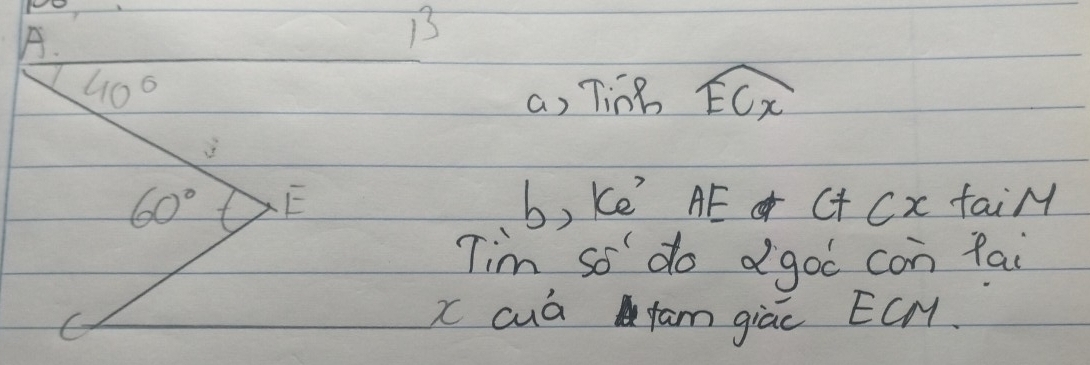 A.
B
40°
a, Tính ECx
60°
E
b, Kẻ AE Ct Cx tại M
Tìm số đo 2 góc còn lại
C
x
của tam giác ECM.